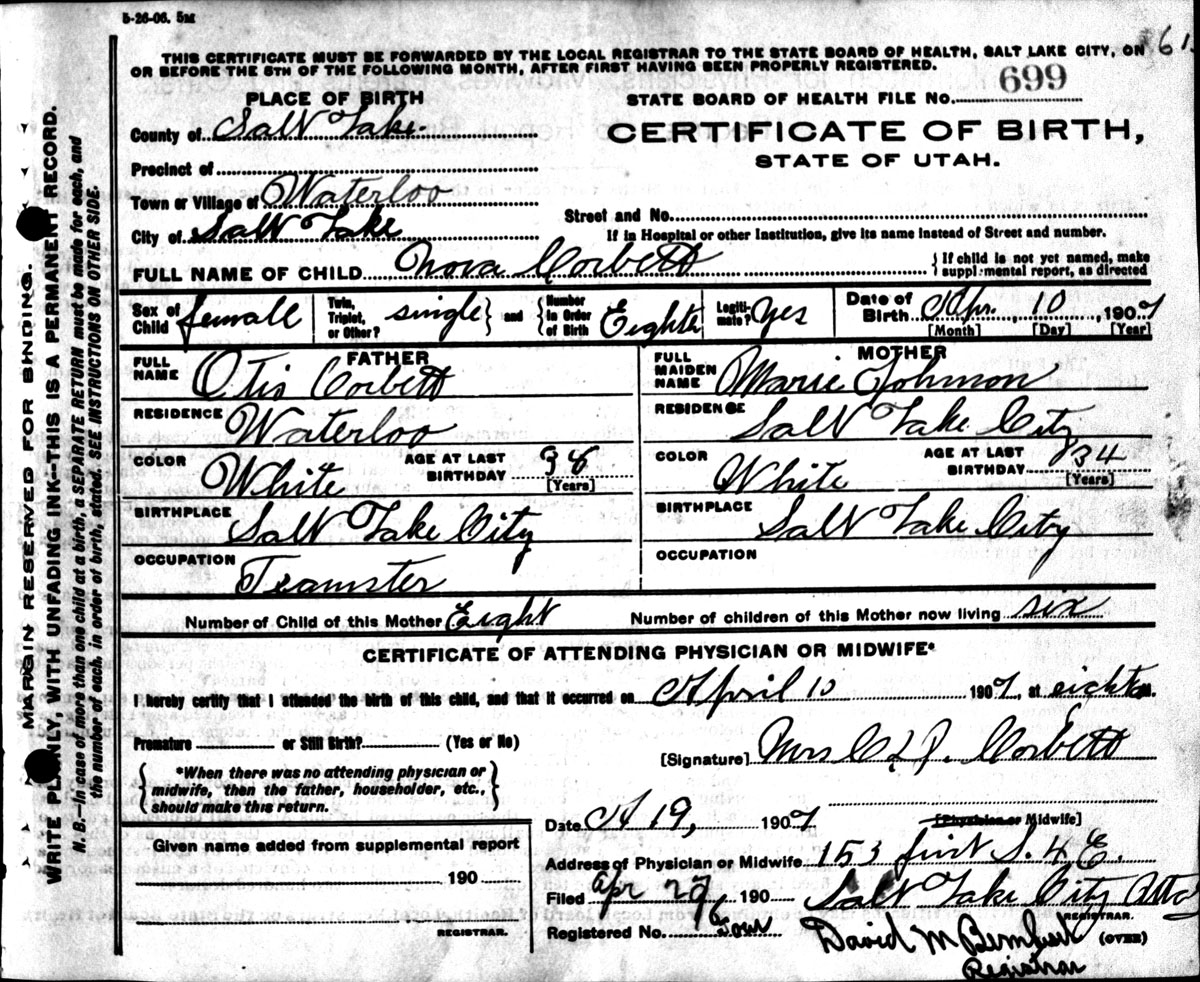 5-26-06. 5M
61
THIS CERTIFICATE MUST BE FORWARDED BY THE LOCAL REGISTRAR TO THE STATE BOARD OF HEALTH, SALT LAKE CITY, ON
OR BEFORE THE 5TH OF THE FOLLOWING MONTH, AFTER FIRST HAVING BEEN PROPERLY REGISTERED.
STATE BOARD OF HEALTH FILE NO. 699
CERTIFICATE OF BIRTH,
STATE OF UTAH.
PLACE OF BIRTH
County of Salt Lake.
Precinct of
Town or Village of Waterloo
City of Salt Lake
Street and No.
If in Hospital or other Institution, give its name instead of Street and number.
FULL NAME OF CHILD Nora Corbett
{ If child is not yet named, make
supplemental report, as directed
Sex of Child female
Twin, Triplet, or Other? single } and { Number in Order of Birth Eighte
Legitimate? Yes
Date of Birth Apr. 10, 1907
[Month] [Day] [Year]
FATHER
FULL NAME Otis Corbett
RESIDENCE Waterloo
COLOR White AGE AT LAST BIRTHDAY 36 [Years]
BIRTHPLACE Salt Lake City
OCCUPATION Teamster
MOTHER
FULL MAIDEN NAME Marie Johnson
RESIDENCE Salt Lake City
COLOR White AGE AT LAST BIRTHDAY 34 [Years]
BIRTHPLACE Salt Lake City
OCCUPATION
Number of Child of this Mother Eight Number of children of this Mother now living six
CERTIFICATE OF ATTENDING PHYSICIAN OR MIDWIFE*
I hereby certify that I attended the birth of this child, and that it occurred on April 10 1907, at eight M.
Premature or Still Birth? (Yes or No)
{ *When there was no attending physician or
midwife, then the father, householder, etc.,
should make this return. }
[Signature] Mrs Corbett
[Physician or Midwife]
Date A 19, 1907
Address of Physician or Midwife 153 first S. 4 E.
Salt Lake City
Given name added from supplemental report
190
REGISTRAR.
Filed Apr 29, 190
REGISTRAR.
Registered No. Four
David M
Registrar
(OVER)
MARGIN RESERVED FOR BINDING.
WRITE PLAINLY, WITH UNFADING INK—THIS IS A PERMANENT RECORD.
N. B.—In case of more than one child at a birth, a SEPARATE RETURN must be made for each, and
the number of each, in order of birth, stated. SEE INSTRUCTIONS ON OTHER SIDE.